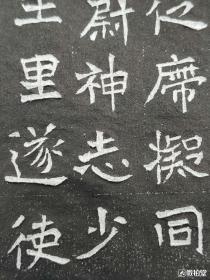 席擬同
尉神志少
里遂使
教拍堂